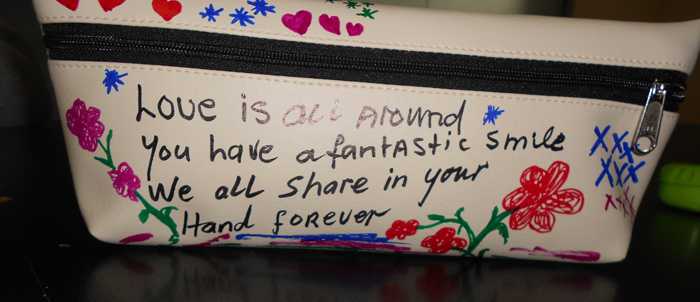 Love is all around
You have a fantastic smile
We all share in your
Hand forever